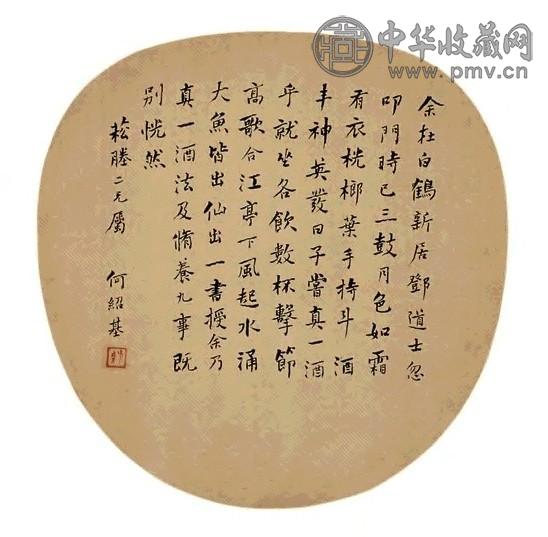 中华收藏网
www.pmv.cn
余在白鶴新居鄧道士忽
叩門時已三鼓月色如霜
有衣桄榔葉手持斗酒
丰神英發曰子嘗真一酒
乎就坐各飲數杯擊節
高歌合江亭下風起水涌
大魚皆出仙出一書授余乃
真一酒法及脩養九事既
別恍然
菘塍二兄屬 何紹基